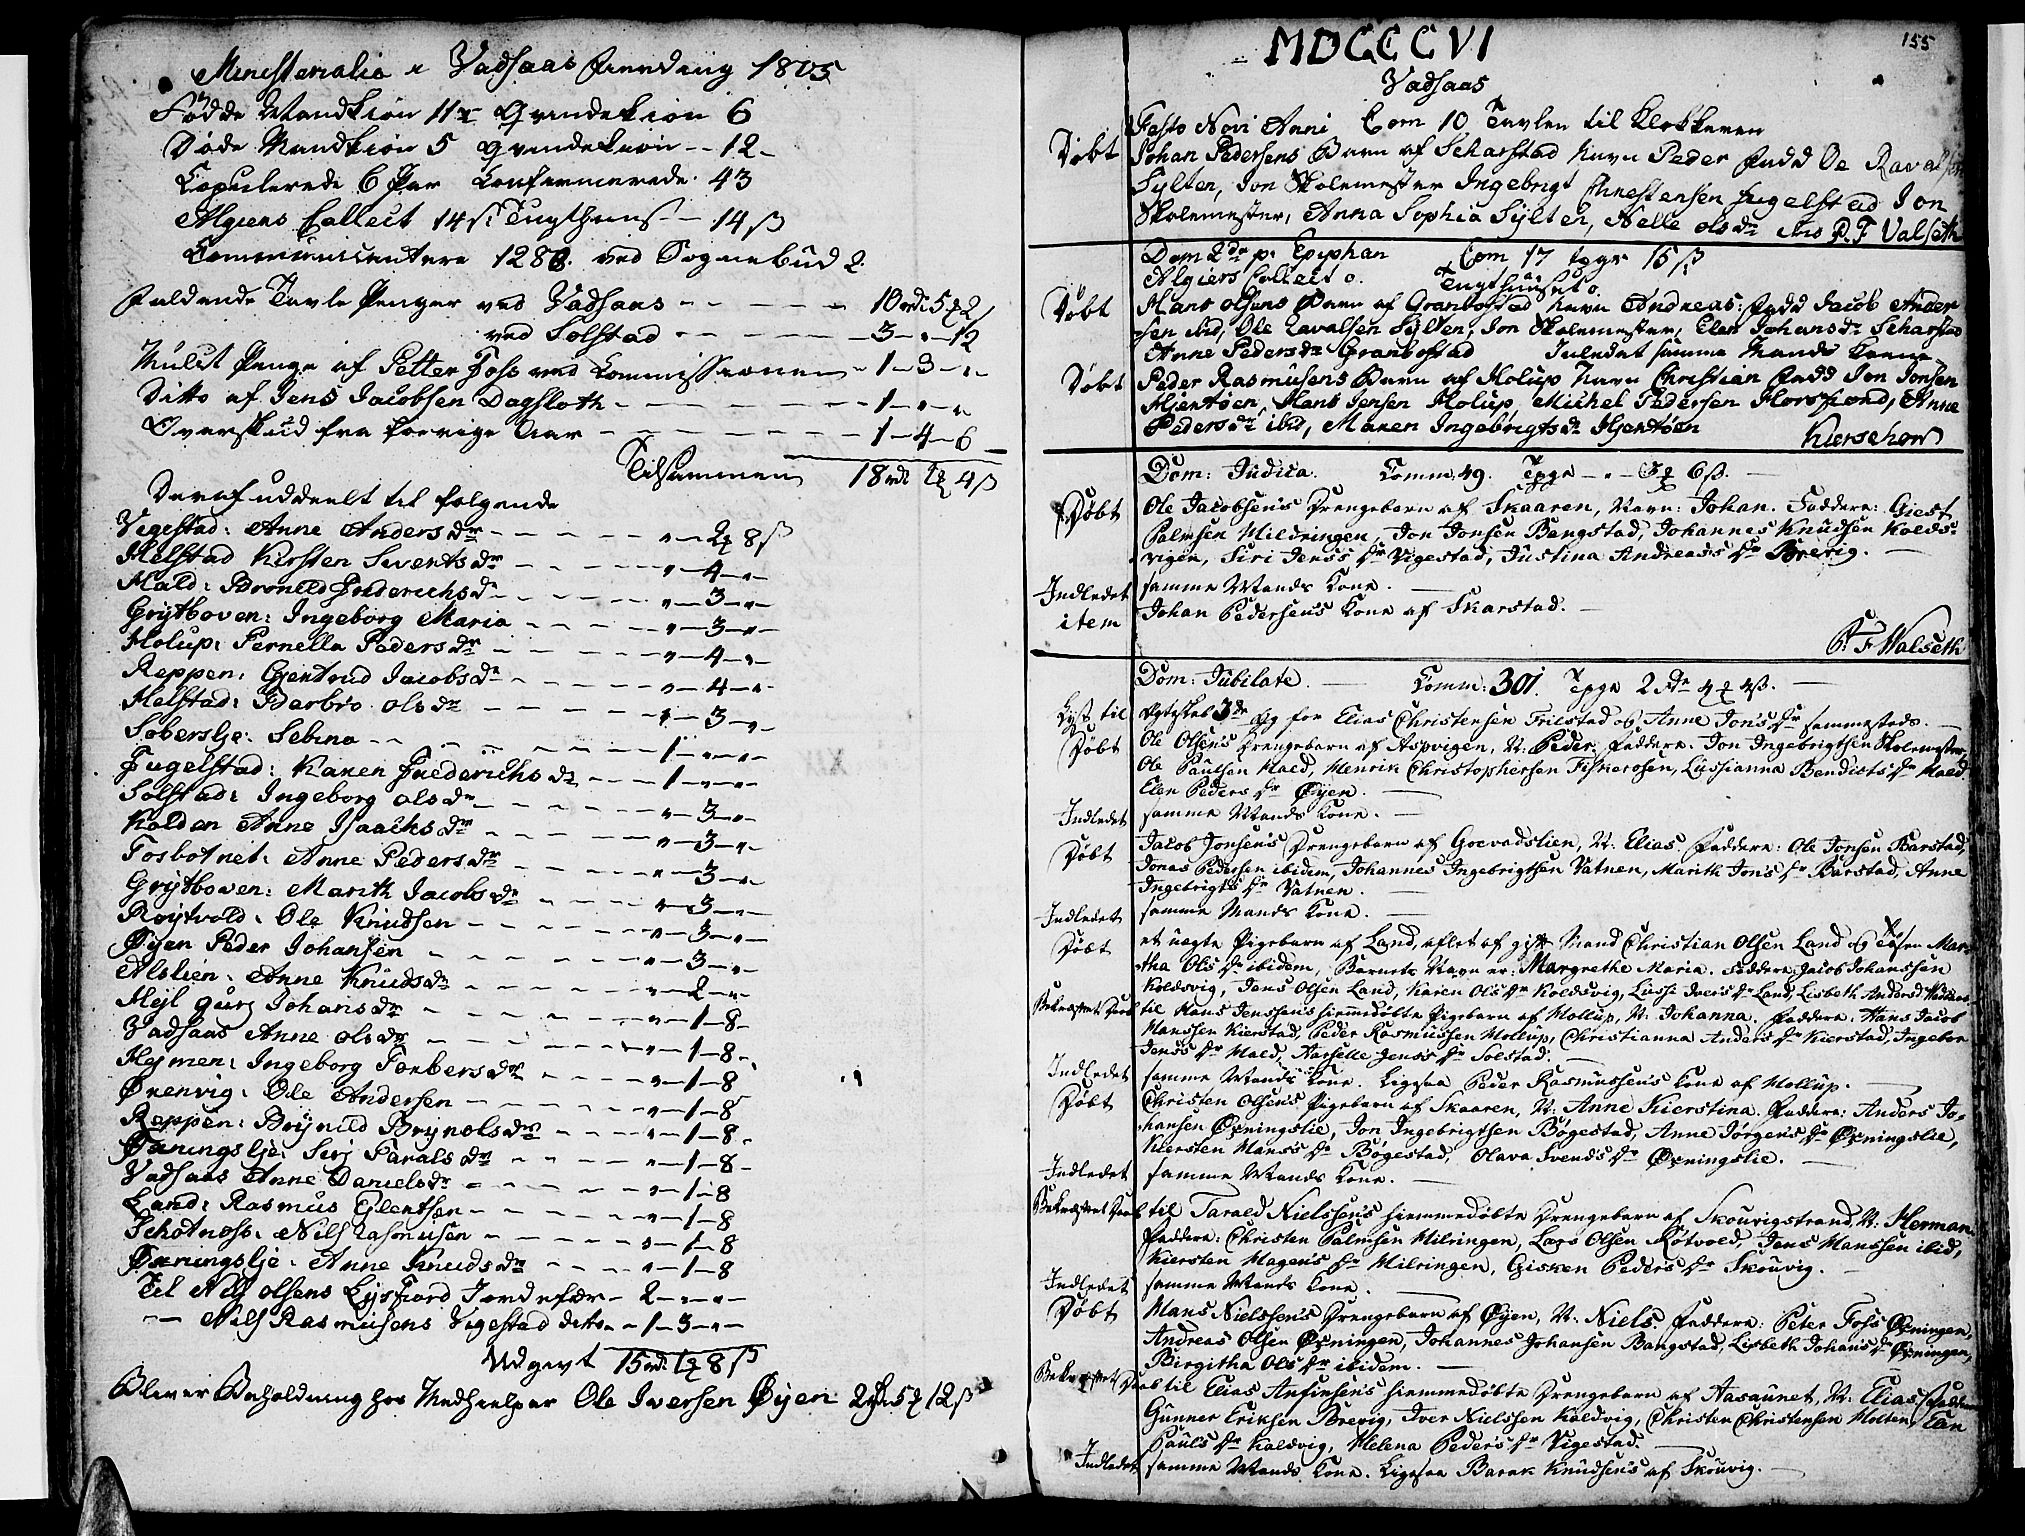 Ministerialia i Vadsaas Fierding 1805
Fødde Mandkiön 11 Qvindekiön 6
Døde Mandkiön 5 Qvindekiön -- 12 -
Copulerede 6 Par Confirmerede 43
Algiers Collect 14 ß Tugthuus -- 14 ß
Communicentere 1288 ved Sognebud 2.
Faldende Tavle Penger ved Vadsaas - - - - - 10 rd 5 2
ved Solstad - - - - - 3 - " - 12
Mulct Penge af Petter Foss ved Commissionen - 1 - 3 - " -
Ditto af Jens Jacobsen Dagsloth - - - - - 1 - " - "
Overskud fra forrige Aar - - - - - 1 - 4 - 6
Tilsammen 18 rd 4 ß
Deraf uddeelt til følgende
Vigestad: Anne Anders dr - - - - " - 2 8 ß
Helstad Kirsten Sivents dr - - - - " - 4 - " -
Mald: Bronild Friderichs dr - - - - " - 3 - " -
Grytboven: Ingeborg Maria - - - - " - 3 - " -
Molup: Pernella Peders dr - - - - " - 4 - " -
Reppen: Gjertrud Jacobs dr - - - - " - 4 - " -
Helstad: Barbro ols dr - - - - " - 3 - " -
Soberslje: Sebina - - - - 1 - " - " -
Fugelstad: Karen Friederichs dr - - - 1 - " - " -
Solstad: Ingeborg ols dr - - - - " - 3 - " -
Kolden Anne Isaachs dr - - - - " - 3 - " -
Fosbotnet: Anne Peders dr - - - - " - 3 - " -
Grytboven: Marith Jacobs dr - - - - " - 3 - " -
Röytvold: Ole Knudsen - - - - " - 3 - " -
Øyen Peder Johansen - - - - " - 3 - " -
Alslien: Anne Knuds dr - - - - " - 2 - " -
Mejl gurj Johans dr - - - - " - 1 - 8 -
Vadsaas Anne ols dr - - - - " - 1 - 8
Hejmen: Ingeborg Torbers dr - - - - " - 1 - 8
Ørenvig: Ole Andersen - - - - " - 1 - 8
Reppen: Brynild Brynols dr - - - - " - 1 - 8 -
Øxningslje: Sirj Tarals dr - - - - " - 1 - 8 -
Vadsaas Anne Daniels dr - - - - " - 1 - 8
Land: Rasmus Ejlertsen - - - - " - 1 - 8
Schotnoss: Nils Rasmusen - - - - " - 1 - 8
Øxningslje: Anne Knuds dr - - - - " - 1 - 8
Til Nils olsens Lysfjord Jordefær - 2 - " - " -
-- Nils Rasmusens Vigestad ditto - - 1 - 3 - " -
Udgivt 15 rd 8 ß
Bliver Beholdning hos Medhielper Ole Iversen Øyen 2 rd 5 12 ß
155
MDCCCVI
Vadsaas
Festo Novi Anni Com 10 Tavlen til Klokkeren
Døbt Johan Pedersens Barn af Scharstad Navn Peder Fadd Ole Ravalsen
Sylten, Jon Skolemester Ingebrigt Christensen Fugelstad Jon
Skolemester, Anna Sophia Sylten, Nelle ols dr ibid P. F Valseth
Dom 2 da p. Epiphan Com 17 tpge 15 ß
Algiers Collect o. Tugthuuset o
Døbt Hans olsens Barn af Granbostad Navn Andreas: Fadd Jacob Ander
sen ibid, Ole Ravalsen Sylten, Jon Skolemester, Elen Johans dr Scharstad
Anne Peders dr Granbostad Inledet samme Mands Konne
Døbt Peder Rasmusens Barn af Molup Navn Christian Fadd Jon Jonsen
Hjertøen, Hans Jensen Molup, Michel Pedersen Horsfiord, Anne
Peders dr ibid, Maren Ingebrigts dr Hjertøen Kierschow
Dom: Judica. Comm: 49. Tpge - " - 3 6 ß. -
Døbt Ole Jacobsens Drengebarn af Skaaren, Navn: Johan. Faddere: Giest
Palmsen Mildringen, Jon Jonsen Bangstad, Johannes Knudsen Kolds-
vigen, Siri Jens's dr Vigestad, Justina Andreas's dr Brevig. -
Indledet samme Mands Kone. -
item Johan Pedersens Kone af Skarstad. -
P: F Walseth
Dom: Jubilate. - Comm: 301. Tpge 2 rd 4 4 ß. -
Lyst til Ægteskab 3 de Gg for Elias Christensen Frilstad og Anne Jons dr sammesteds. -
Døbt Ole Olsens Drengebarn af Aspvigen, N: Peder. Faddere: Jon Ingebrigtsen Skolemester,
Ole Paulsen Mald, Henrik Christophersen Fiskerosen, Lussianna Bendicts dr Mald,
Elen Peders dr Øyen. -
Indledet samme Mands Kone. -
Døbt Jacob Jonsens Drengebarn af Goevadslien, N: Elias. Faddere: Ole Jonsen Barstad,
Jonas Pedersen ibidem, Johannes Ingebrigtsen Vatnen, Marith Jons dr Barstad, Anne
Ingebrigts dr Vatnen. -
Indledet samme Mands Kone. -
Døbt et uægte Pigebarn af Land, aflet af gift Mand Christian Olsen Land og Tøsen Mar-
tha Ols dr ibidem, Barnets Navn er: Margrethe Maria. Faddere Jacob Johanssen
Koldsvig, Jens Olsen Land, Karen Ols dr Koldsvig, Lusse Ivers dr Land, Lisbeth Andersd
Bekræftet Daab til Hans Jenssens hiemmedøbte Pigebarn af Mollup, N: Johanna. Faddere: Hans Jacob
Hanssen Kierstad, Peder Rasmussen Mollup, Christianna Anders dr Kierstad, Ingebor
Jens's dr Mald, Karselle Jens's dr Solstad. -
Indledet samme Mands Kone. Ligesaa Peder Rasmussens Kone af Mollup. -
Døbt Christen Olsens Pigebarn af Skaaren, N: Anne Kierstina. Faddere: Anders Jo-
hansen Øxningslie, Jon Ingebrigtsen Bøgestad, Anne Jørgens dr Øxningslie,
Kiersten Hans's dr Bøgestad, Olava Svends dr Øxningslie. -
Indledet samme Mands Kone. -
Bekræftet Daab til Tarald Nielssens hiemmedøbte Drengebarn af Skouvigstrand, N: Herman.
Faddere: Christen Palmsen Milringen, Lars Olsen Røtvold, Jens Hanssen ibid,
Kiersten Magens dr Milringen, Gisken Peders dr Skouvig. -
Indledet samme Mands Kone. -
Døbt Hans Nielssens Drengebarn af Øyen, N: Niels. Faddere: Peter Foss Øxningen,
Andreas Olsen Øxningen, Johannes Johansen Bangstad, Lisbeth Johans dr Øxningen,
Birgitha Ols dr ibidem. -
Bekræftet Daab til Elias Anfinsens hiemmedøbte Drengebarn af Aasaunet, N: Elias. Faddere
Gunner Eriksen Brevig, Iver Nielssen Koldvig, Christen Christensen Molten, Elen
Pauls dr Koldvig, Helena Peders dr Vigestad. -
Indledet samme Mands Kone. Ligesaa Barak Knudsens af Skouvig. -